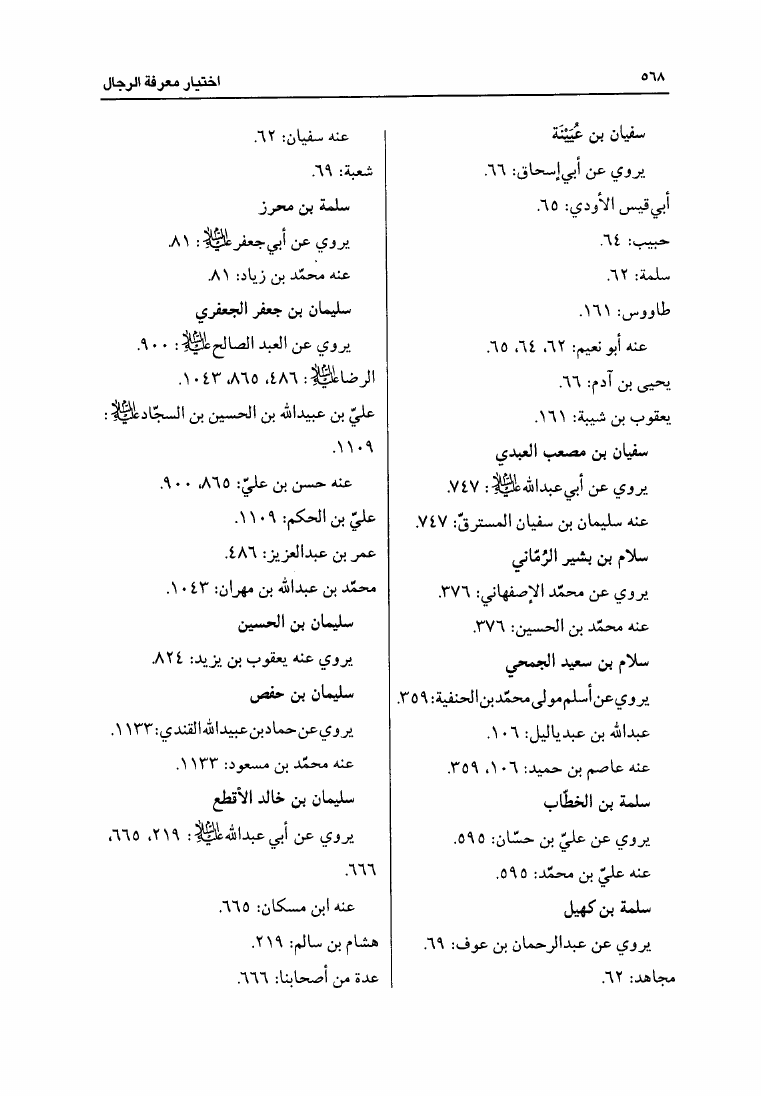 ٥٦٨
اختيار معرفة الرجال
سفيان بن عُيَيْنَة
يروي عن أبي إسحاق: ٦٦.
أبي قيس الأودي: ٦٥.
حبيب: ٦٤.
سلمة: ٦٢.
طاووس: ١٦١.
عنه أبو نعيم: ٦٢، ٦٤، ٦٥.
يحيى بن آدم: ٦٦.
يعقوب بن شيبة: ١٦١.
سفيان بن مصعب العبدي
يروي عن أبي عبدالله عليه السلام: ٧٤٧.
عنه سليمان بن سفيان المسترقّ: ٧٤٧.
سلام بن بشير الرُمّاني
يروي عن محمّد الإصفهاني: ٣٧٦.
عنه محمّد بن الحسين: ٣٧٦.
سلام بن سعيد الجمحي
يروي عن أسلم مولى محمّد بن الحنفية: ٣٥٩.
عبدالله بن عبدياليل: ١٠٦.
عنه عاصم بن حميد: ١٠٦، ٣٥٩.
سلمة بن الخطّاب
يروي عن عليّ بن حسّان: ٥٩٥.
عنه عليّ بن محمّد: ٥٩٥.
سلمة بن كهيل
يروي عن عبدالرحمان بن عوف: ٦٩.
مجاهد: ٦٢.
عنه سفيان: ٦٢.
شعبة: ٦٩.
سلمة بن محرز
يروي عن أبي جعفر عليه السلام: ٨١.
عنه محمّد بن زياد: ٨١.
سليمان بن جعفر الجعفري
يروي عن العبد الصالح عليه السلام: ٩٠٠.
الرضا عليه السلام: ٤٨٦، ٨٦٥، ١٠٤٣.
عليّ بن عبيدالله بن الحسين بن السجّاد عليه السلام:
١١٠٩.
عنه حسن بن عليّ: ٨٦٥، ٩٠٠.
عليّ بن الحكم: ١١٠٩.
عمر بن عبدالعزيز: ٤٨٦.
محمّد بن عبدالله بن مهران: ١٠٤٣.
سليمان بن الحسين
يروي عنه يعقوب بن يزيد: ٨٢٤.
سليمان بن حفص
يروي عن حماد بن عبيدالله القندي: ١١٣٣.
عنه محمّد بن مسعود: ١١٣٣.
سليمان بن خالد الأقطع
يروي عن أبي عبدالله عليه السلام: ٢١٩، ٦٦٥،
٦٦٦.
عنه ابن مسكان: ٦٦٥.
هشام بن سالم: ٢١٩.
عدة من أصحابنا: ٦٦٦.